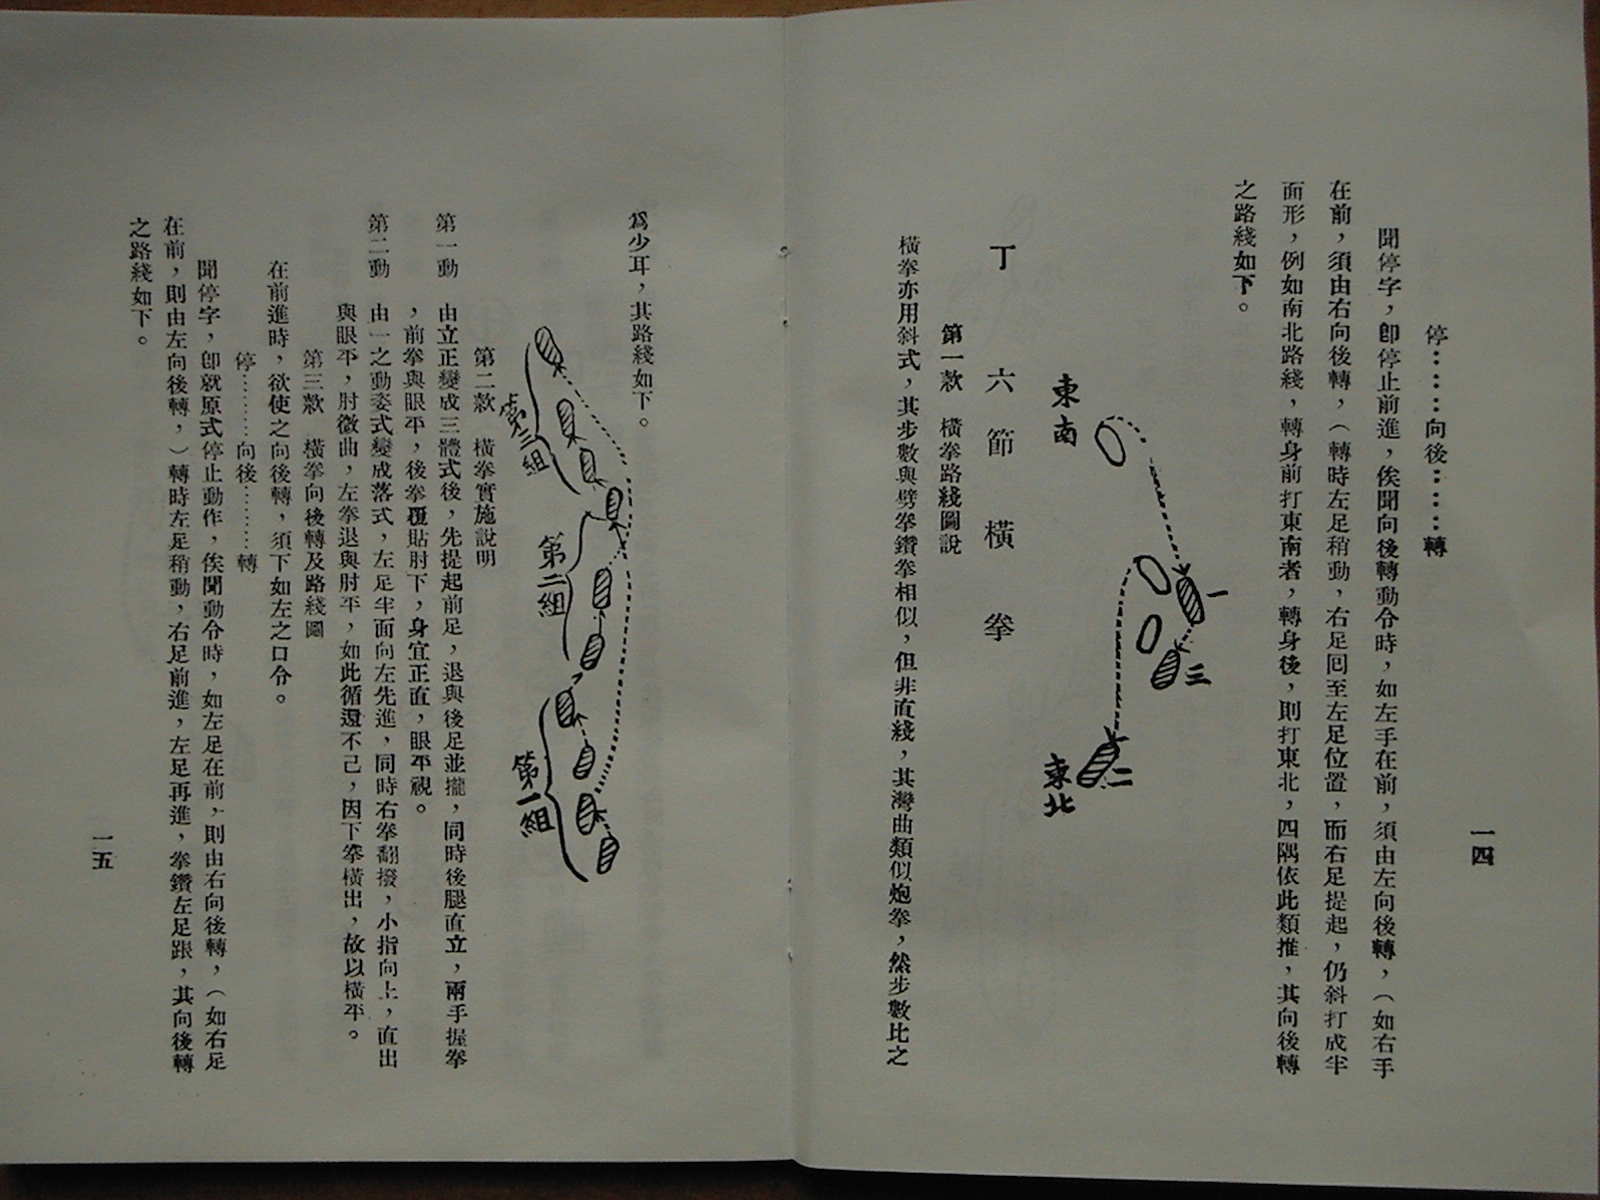 停⋯⋯向後⋯⋯轉
聞停字，卽停止前進，俟聞向後轉動令時，如左手在前，須由左向後轉，（如右手
在前，須由右向後轉，（轉時左足稍動，右足囘至左足位置，而右足提起，仍斜打成半
面形，例如南北路綫，轉身前打東南者，轉身後，則打東北，四隅依此類推，其向後轉
之路綫如下。
東南
一
三
二
東北
丁 六節橫拳
第一款 橫拳路綫圖說
橫拳亦用斜式，其步數與劈拳鑽拳相似，但非直綫，其灣曲類似炮拳，然步數比之
一四
爲少耳，其路綫如下。
第三組
第二組
第一組
第二款 橫拳實施說明
第一動 由立正變成三體式後，先提起前足，退與後足並攏，同時後腿直立，兩手握拳
，前拳與眼平，後拳覆貼肘下，身宜正直，眼平視。
第二動 由一之動姿式變成落式，左足半面向左先進，同時右拳翻撥，小指向上，直出
與眼平，肘微曲，左拳退與肘平，如此循還不已，因下拳橫出，故以橫平。
第三款 橫拳向後轉及路綫圖
在前進時，欲使之向後轉，須下如左之口令。
停⋯⋯⋯向後⋯⋯⋯轉
聞停字，卽就原式停止動作，俟聞動令時，如左足在前，則由右向後轉，（如右足
在前，則由左向後轉，）轉時左足稍動，右足前進，左足再進，拳鑽左足跟，其向後轉
之路綫如下。
一五